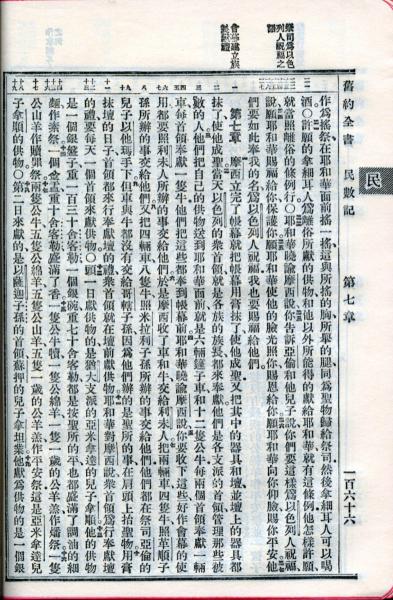 舊約全書 民數記 第七章 一百六十六
民
祭司爲以色
列人祝福之
語
會幕建立族
長獻禮
作爲搖祭在耶和華面前搖一搖這與所搖的胸所舉的腿同爲聖物歸給祭司然後拿細耳人可以喝
酒〇許願的拿細耳人爲離俗所獻的供物和他以外所能得的獻給耶和華就有這條例他怎樣許願
就當照離俗的條例行〇耶和華曉諭摩西說你告訴亞倫和他兒子說你們要這樣爲以色列人祝福
說願耶和華賜福給你保護你願耶和華使他的臉光照你賜恩給你願耶和華向你仰臉賜你平安他
們要如此奉我的名爲以色列人祝福我也要賜福給他們
第七章 摩西立完了帳幕就把帳幕用膏抹了使他成聖又把其中的器具和壇並壇上的器具都
抹了使他成聖當天以色列的衆首領就是各族的族長都來奉獻他們是各支派的首領管理那些被
數的人他們把自己的供物送到耶和華面前就是六輛篷子車和十二隻公牛每兩個首領奉獻一輛
車每首領奉獻一隻牛他們把這些都奉到帳幕前耶和華曉諭摩西說你要收下這些好作會幕的使
用都要照利未人所辦的事交給他們於是摩西收了車和牛交給利未人把兩輛車四隻牛照革順子
孫所辦的事交給他們又把四輛車八隻牛照米拉利子孫所辦的事交給他們他們都在祭司亞倫的
兒子以他瑪手下但車與牛都沒有交給哥轄子孫因爲他們辦的是聖所的事在肩頭上抬聖物用膏
抹壇的日子首領都來行奉獻壇的禮衆首領就在壇前獻供物耶和華對摩西說衆首領爲行奉獻壇
的禮要每天一個首領來獻供物〇頭一日獻供物的是猶大支派的亞米拿達的兒子拿順他的供物
是一個銀盤子重一百三十舍客勒一個銀碗重七十舍客勒都是按聖所的平也都盛滿了調油的細
麵作素祭一個金盂重十舍客勒盛滿了香一隻公牛犢一隻公綿羊一隻一歲的公羊羔作燔祭一隻
公山羊作贖罪祭兩隻公牛五隻公綿羊五隻公山羊五隻一歲的公羊羔作平安祭這是亞米拿達兒
子拿順的供物〇第二日來獻的是以薩迦子孫的首領蘇押的兒子拿坦業他獻爲供物的是一個銀